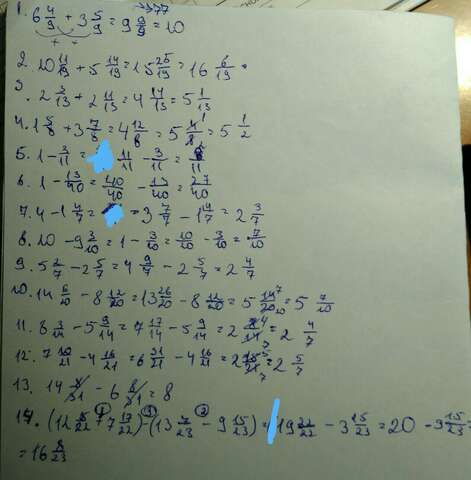 1. 6 4/9 + 3 5/9 = 9 9/9 = 10
2. 10 11/19 + 5 14/19 = 15 25/19 = 16 6/19
3. 2 3/13 + 2 11/13 = 4 14/13 = 5 1/13
4. 1 5/8 + 3 7/8 = 4 12/8 = 5 4/8 = 5 1/2
5. 1 - 3/11 = 11/11 - 3/11 = 8/11
6. 1 - 13/40 = 40/40 - 13/40 = 27/40
7. 4 - 1 4/7 = = 3 7/7 - 1 4/7 = 2 3/7
8. 10 - 9 3/10 = 1 - 3/10 = 10/10 - 3/10 = 7/10
9. 5 2/7 - 2 5/7 = 4 9/7 - 2 5/7 = 2 4/7
10. 14 6/20 - 8 12/20 = 13 26/20 - 8 12/20 = 5 14/20 = 5 7/10
11. 8 3/14 - 5 9/14 = 7 17/14 - 5 9/14 = 2 8/14 = 2 4/7
12. 7 10/21 - 4 16/21 = 6 31/21 - 4 16/21 = 2 15/21 = 2 5/7
13. 14 - 6 = 8
14. (12 5/22 + 7 17/22) - (13 7/23 - 9 15/23) = 19 22/22 - 3 15/23 = 20 - 3 15/23 =
= 16 8/23